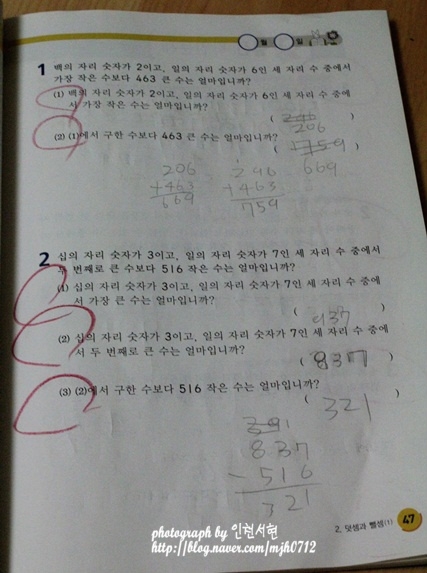 월 일
1 백의 자리 숫자가 2이고, 일의 자리 숫자가 6인 세 자리 수 중에서
가장 작은 수보다 463 큰 수는 얼마입니까?
(1) 백의 자리 숫자가 2이고, 일의 자리 숫자가 6인 세 자리 수 중에
서 가장 작은 수는 얼마입니까?
( 296 )
206
(2) (1)에서 구한 수보다 463 큰 수는 얼마입니까?
( 1759 )
669
206 296
+463 +463
669 759
2 십의 자리 숫자가 3이고, 일의 자리 숫자가 7인 세 자리 수 중에서
두 번째로 큰 수보다 516 작은 수는 얼마입니까?
(1) 십의 자리 숫자가 3이고, 일의 자리 숫자가 7인 세 자리 수 중에
서 가장 큰 수는 얼마입니까?
( 937 )
(2) 십의 자리 숫자가 3이고, 일의 자리 숫자가 7인 세 자리 수 중에
서 두 번째로 큰 수는 얼마입니까?
( 837 )
(3) (2)에서 구한 수보다 516 작은 수는 얼마입니까?
( 321 )
837
-516
321
2. 덧셈과 뺄셈(1) 47
photograph by 인현서현
http://blog.naver.com/mjh0712